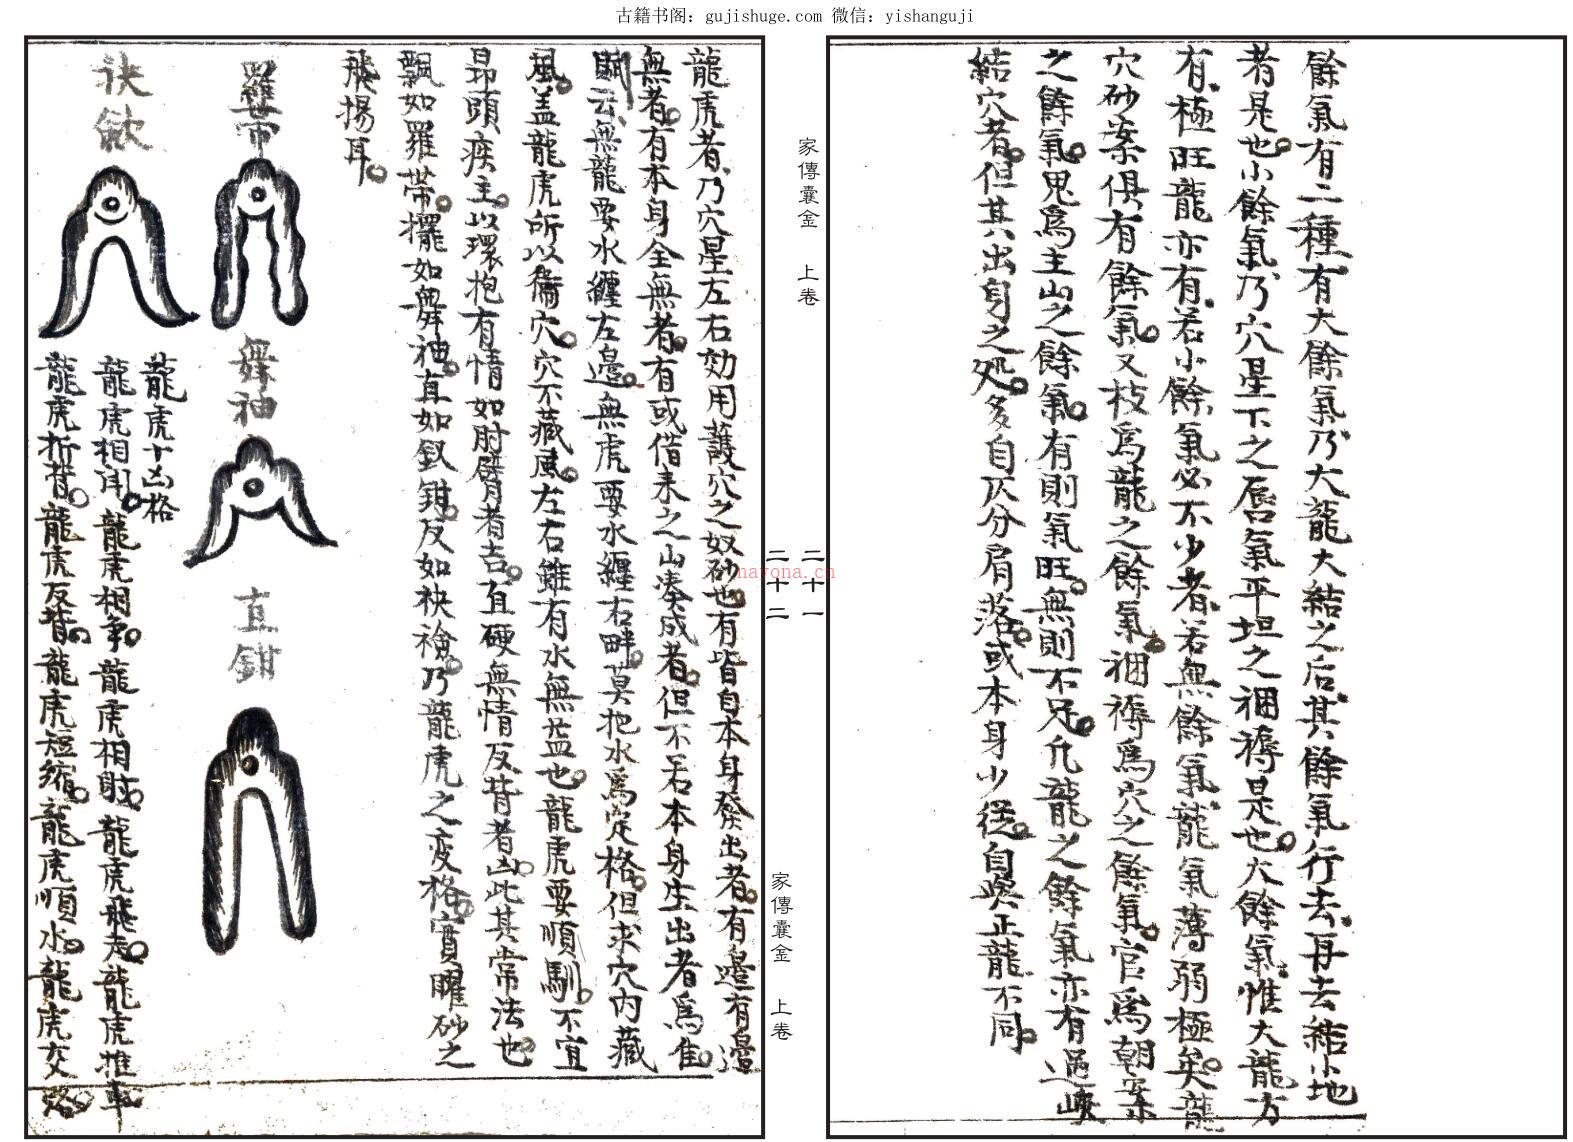 古籍书阁：gujishuge.com 微信：yishanguji
餘氣有二種有大餘氣乃大龍大結之后其餘氣行去再去結小地
者是也小餘氣乃穴星下之唇氣平坦之裀褥是也大餘氣惟大龍方
有極旺龍亦有若小餘氣必不少者若無餘氣龍氣薄弱極矣龍
穴砂案俱有餘氣又枝爲龍之餘氣裀褥爲穴之餘氣官爲朝案
之餘氣鬼爲主山之餘氣有則氣旺無則不足凡龍之餘氣亦有過峽
結穴者但其出身之処多自仄分肩落或本身少從自與正龍不同
家傳囊金 上卷
二十一
二十二
家傳囊金 上卷
nayona.cn
龍虎者乃穴星左右効用護穴之奴砂也有皆自本身發出者有邊有邊
無者有本身全無者有或借来之山凑成者但不若本身生出者爲佳
賦云無龍要水纏左邊無虎要水纏右畔莫把水爲定格但求穴內藏
風盖龍虎所以衛穴穴不藏風左右雖有水無益也龍虎要順馴不宜
昂頭疾主以環抱有情如肘臂者吉直硬無情反背者凶此其常法也
飄如羅帶擺如舞袖直如釵鉗反如袂襘乃龍虎之变格實曜砂之
飛揚耳
羅帶
舞袖
直鉗
袂
龍虎十凶格
龍虎相鬥龍虎相争龍虎相射龍虎飛走龍虎推車
龍虎折背龍虎反背龍虎短縮龍虎順水龍虎交路